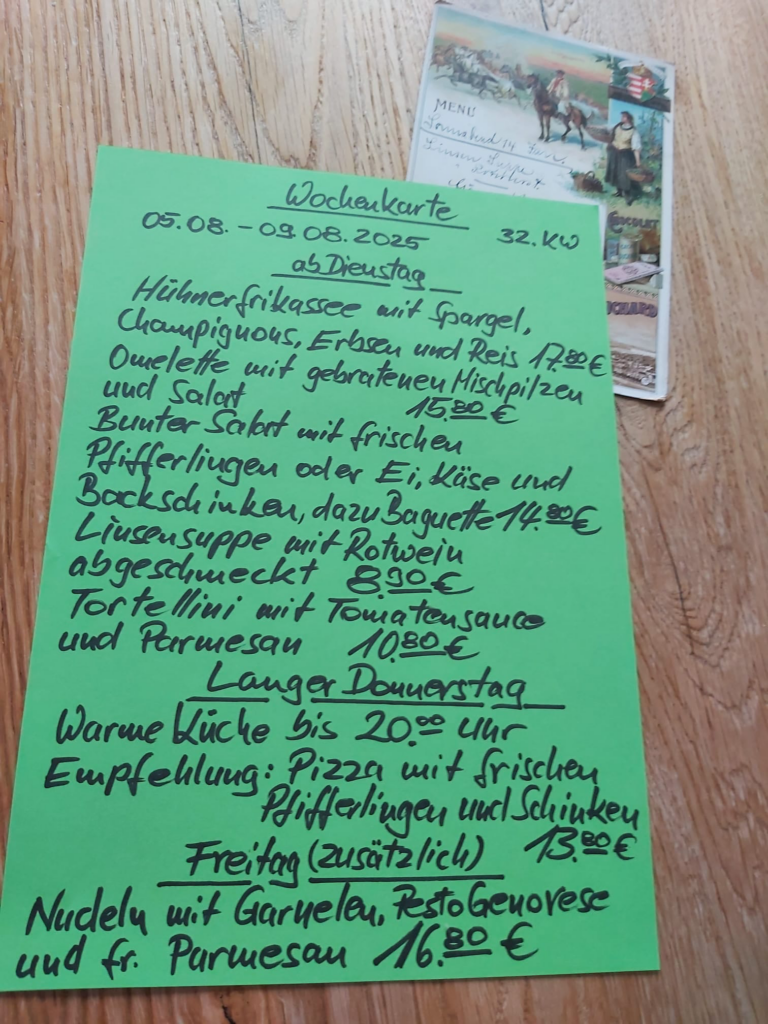 MENU
Sonnabend 14
Linsen Suppe
CHOCOLAT
SUCHARD
Wochenkarte
05.08. – 09.08.2025 32. KW
ab Dienstag
Hühnerfrikassee mit Spargel,
Champignons, Erbsen und Reis 17.80 €
Omelette mit gebratenen Mischpilzen
und Salat 15.80 €
Bunter Salat mit frischen
Pfifferlingen oder Ei, Käse und
Backschinken, dazu Baguette 14.80 €
Linsensuppe mit Rotwein
abgeschmeckt 8.90 €
Tortellini mit Tomatensauce
und Parmesan 10.80 €
Langer Donnerstag
Warme Küche bis 20.00 Uhr
Empfehlung: Pizza mit frischen
Pfifferlingen und Schinken
13.80 €
Freitag (zusätzlich)
Nudeln mit Garnelen, Pesto Genovese
und fr. Parmesan 16.80 €